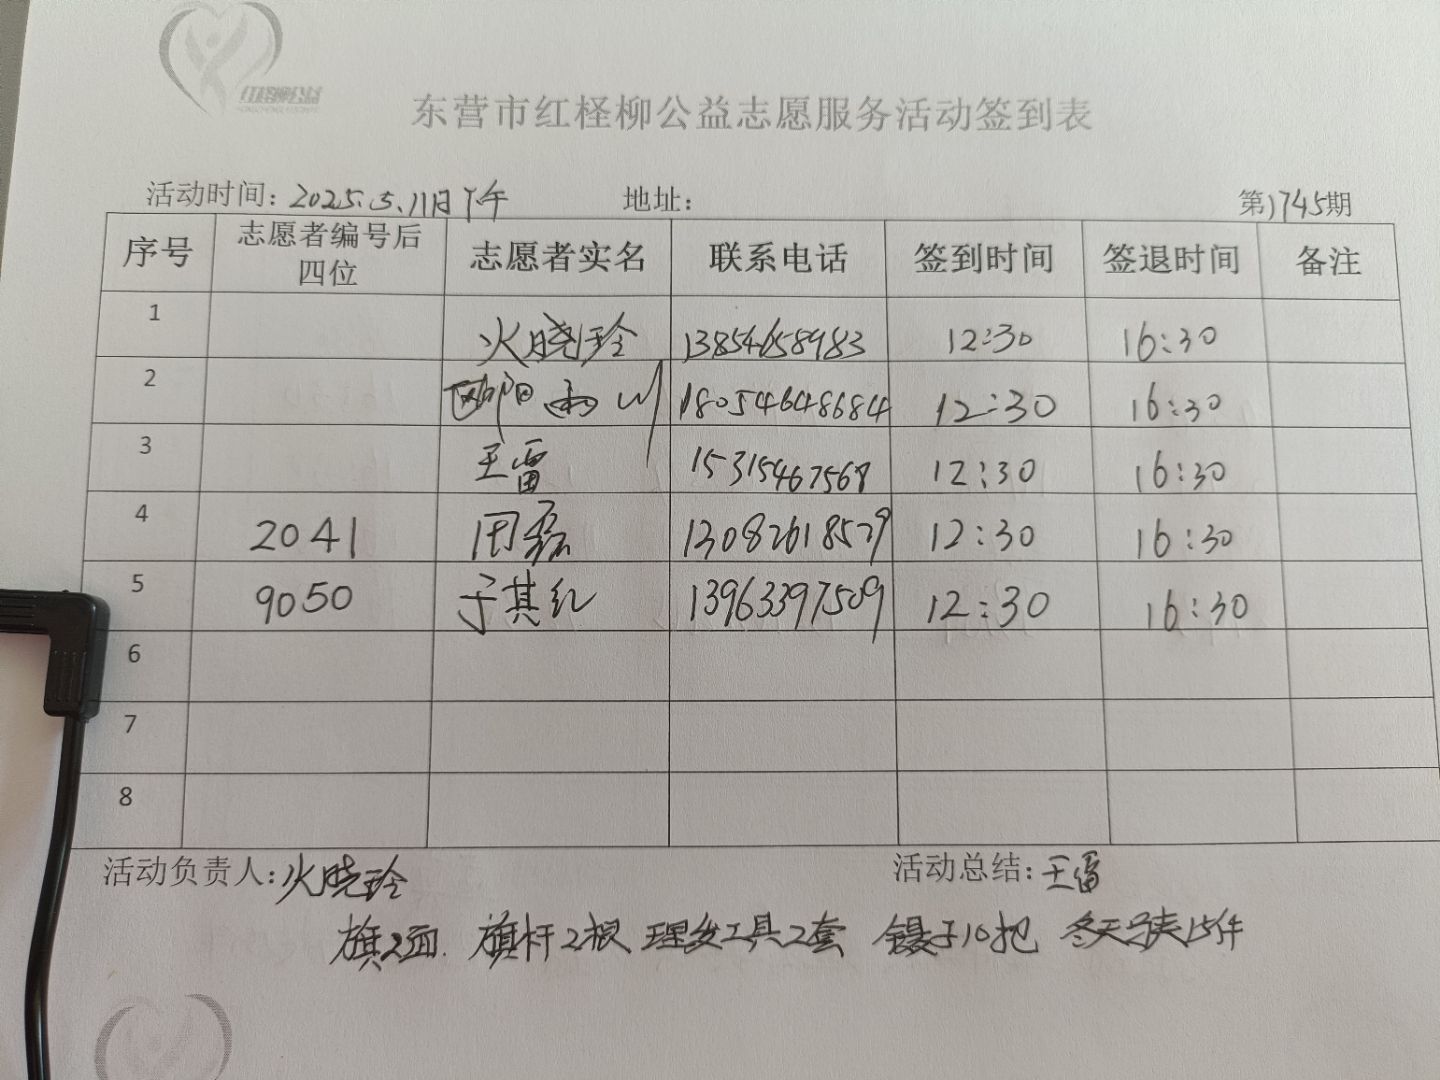 红柽柳公益
东营市红柽柳公益志愿服务活动签到表
活动时间：2025.5.11日下午 地址： 第1745期
序号 志愿者编号后四位 志愿者实名 联系电话 签到时间 签退时间 备注
1 火晓玲 13854658983 12:30 16:30
2 欧阳 18054648684 12:30 16:30
3 王雷 15315467568 12:30 16:30
4 2041 田磊 13082618529 12:30 16:30
5 9050 于其红 13963397509 12:30 16:30
6
7
8
活动负责人：火晓玲 活动总结：王雷
旗2面. 旗杆2根 理发工具2套 镊子10把 冬天马夹15件